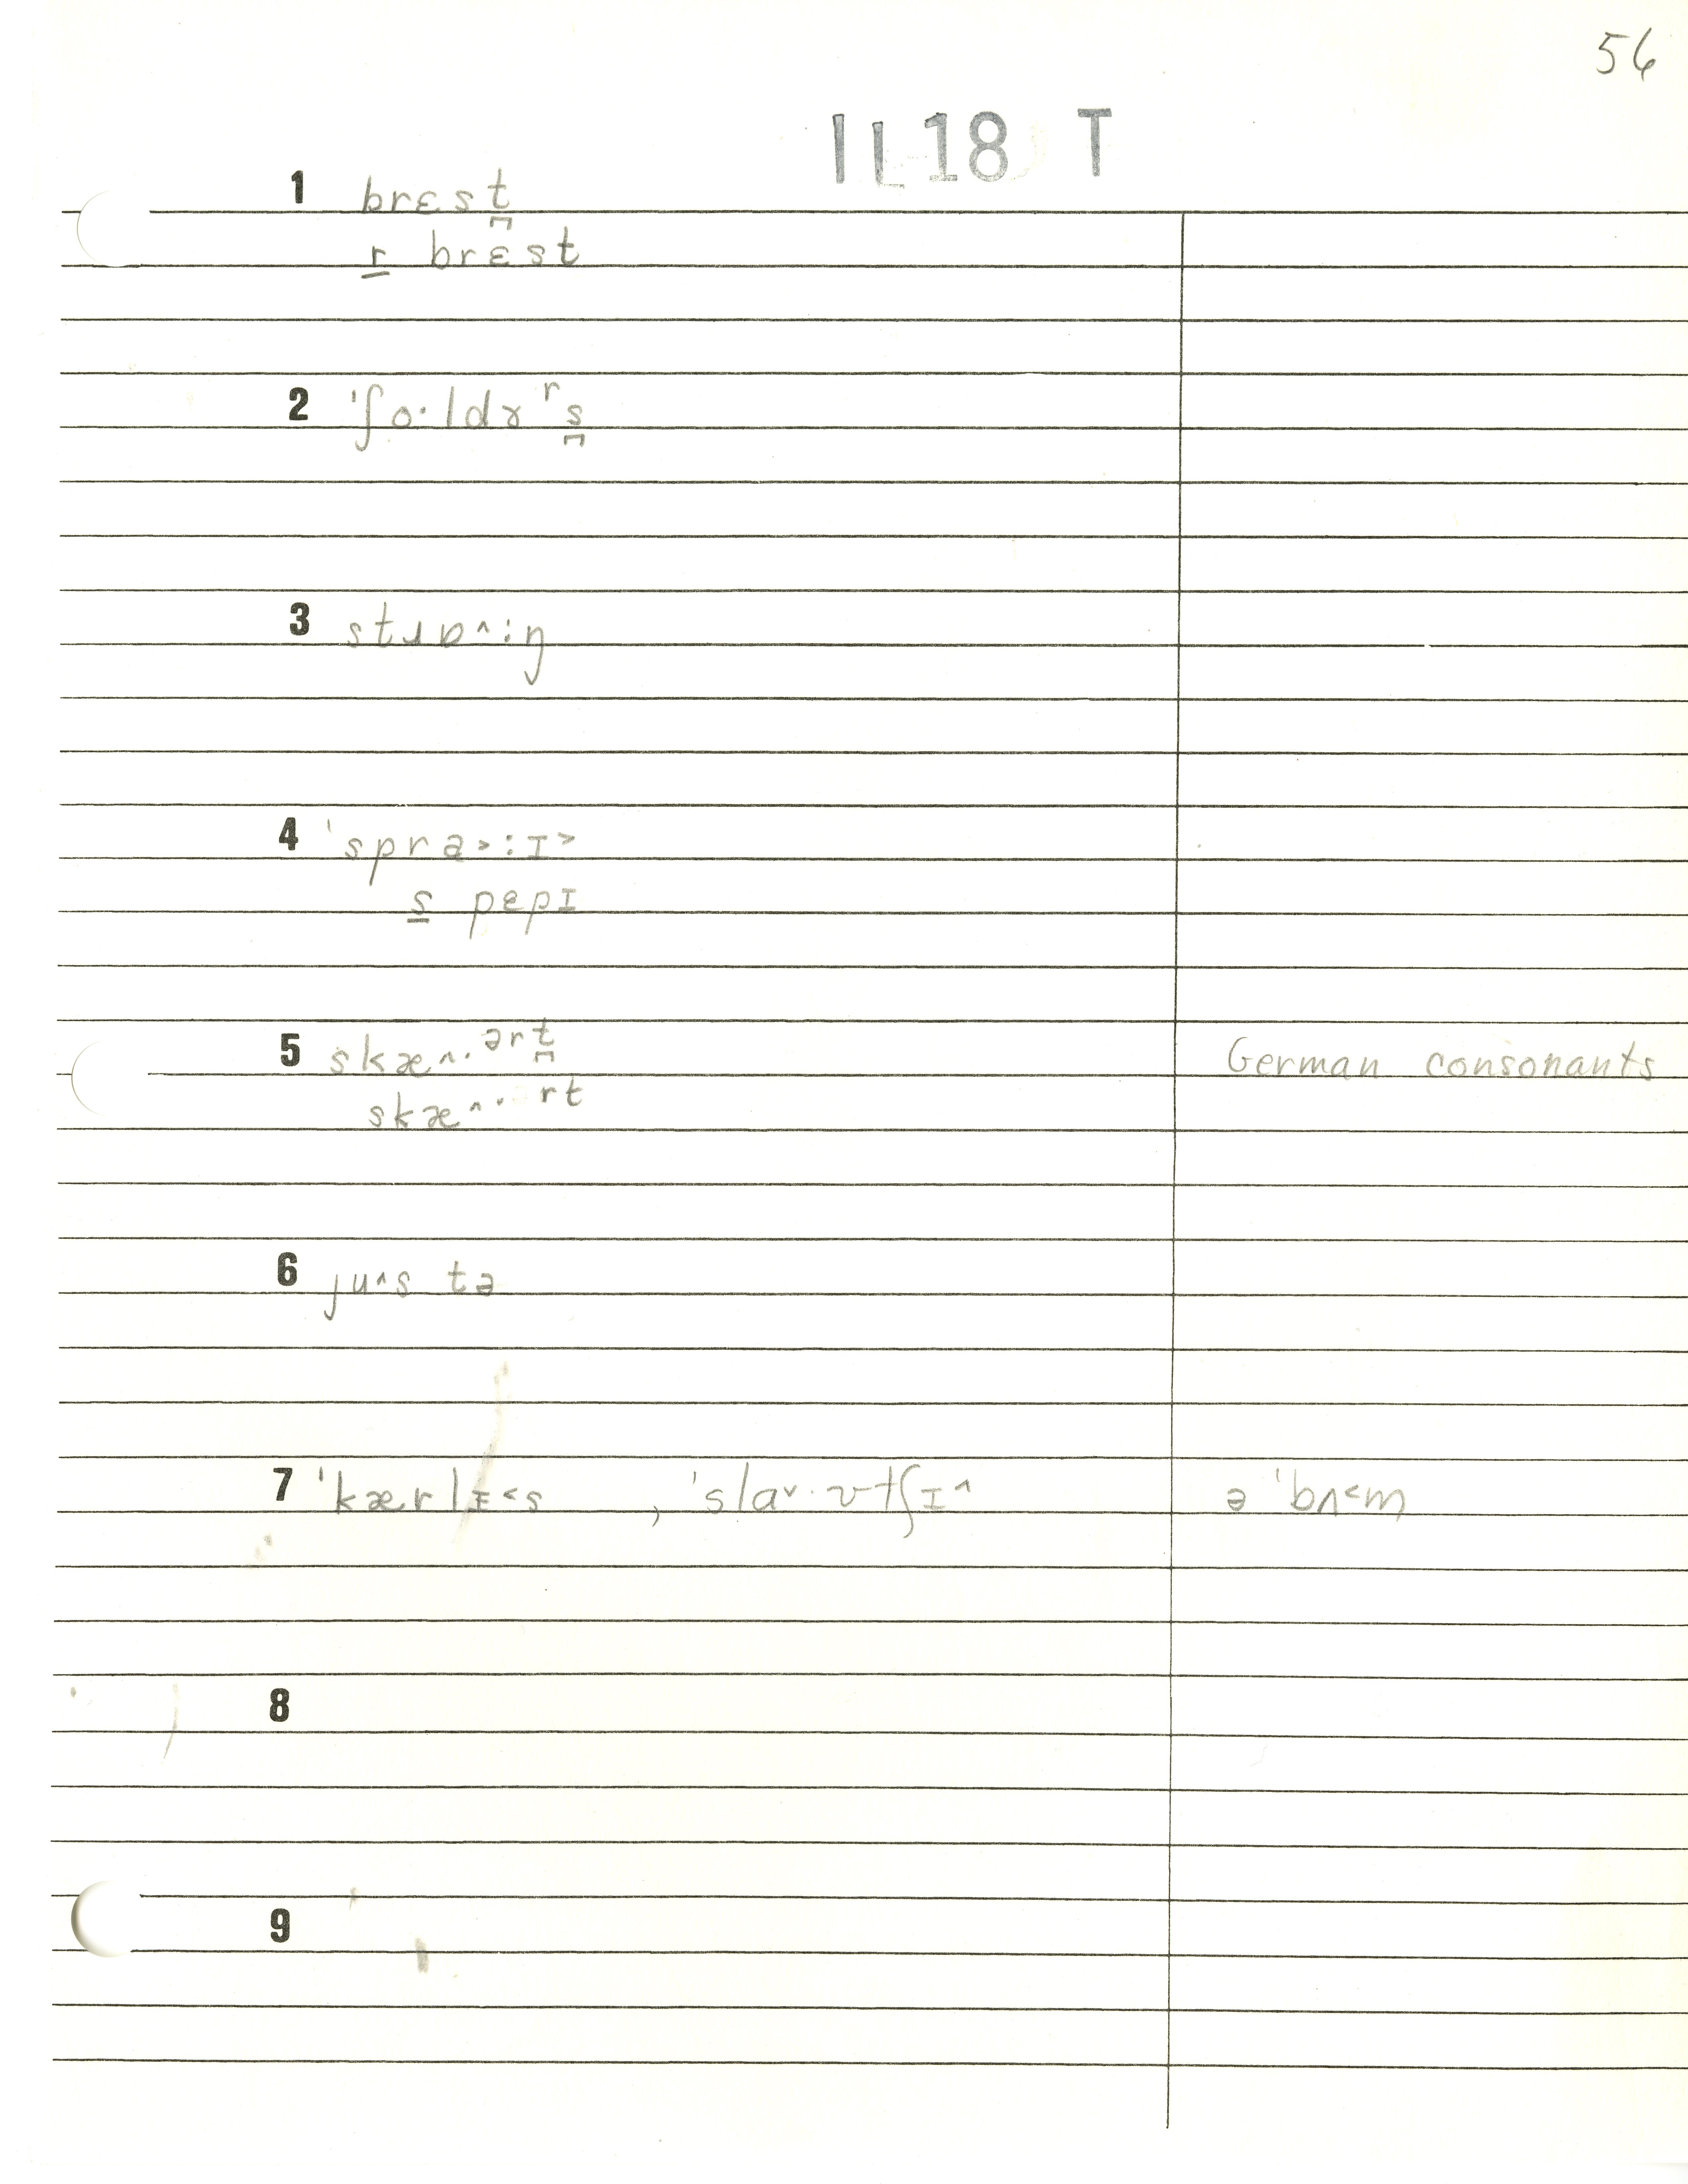 56
IL18 T
1 brɛst̪
r̲ brɛst
2 ˈʃo·ldɤʳs̪
3 stɹɒ^:ŋ
4 ˈsprə>:ɪ>
s̲ pɛpɪ
5 skæ^·ᵊʳt̪ German consonants
skæ^·ʳᵗ
6 ju^s tə
7 ˈkærlɪ<s , ˈslaᵛ·ʊtʃɪ^ ə ˈbʌ<m
8
9